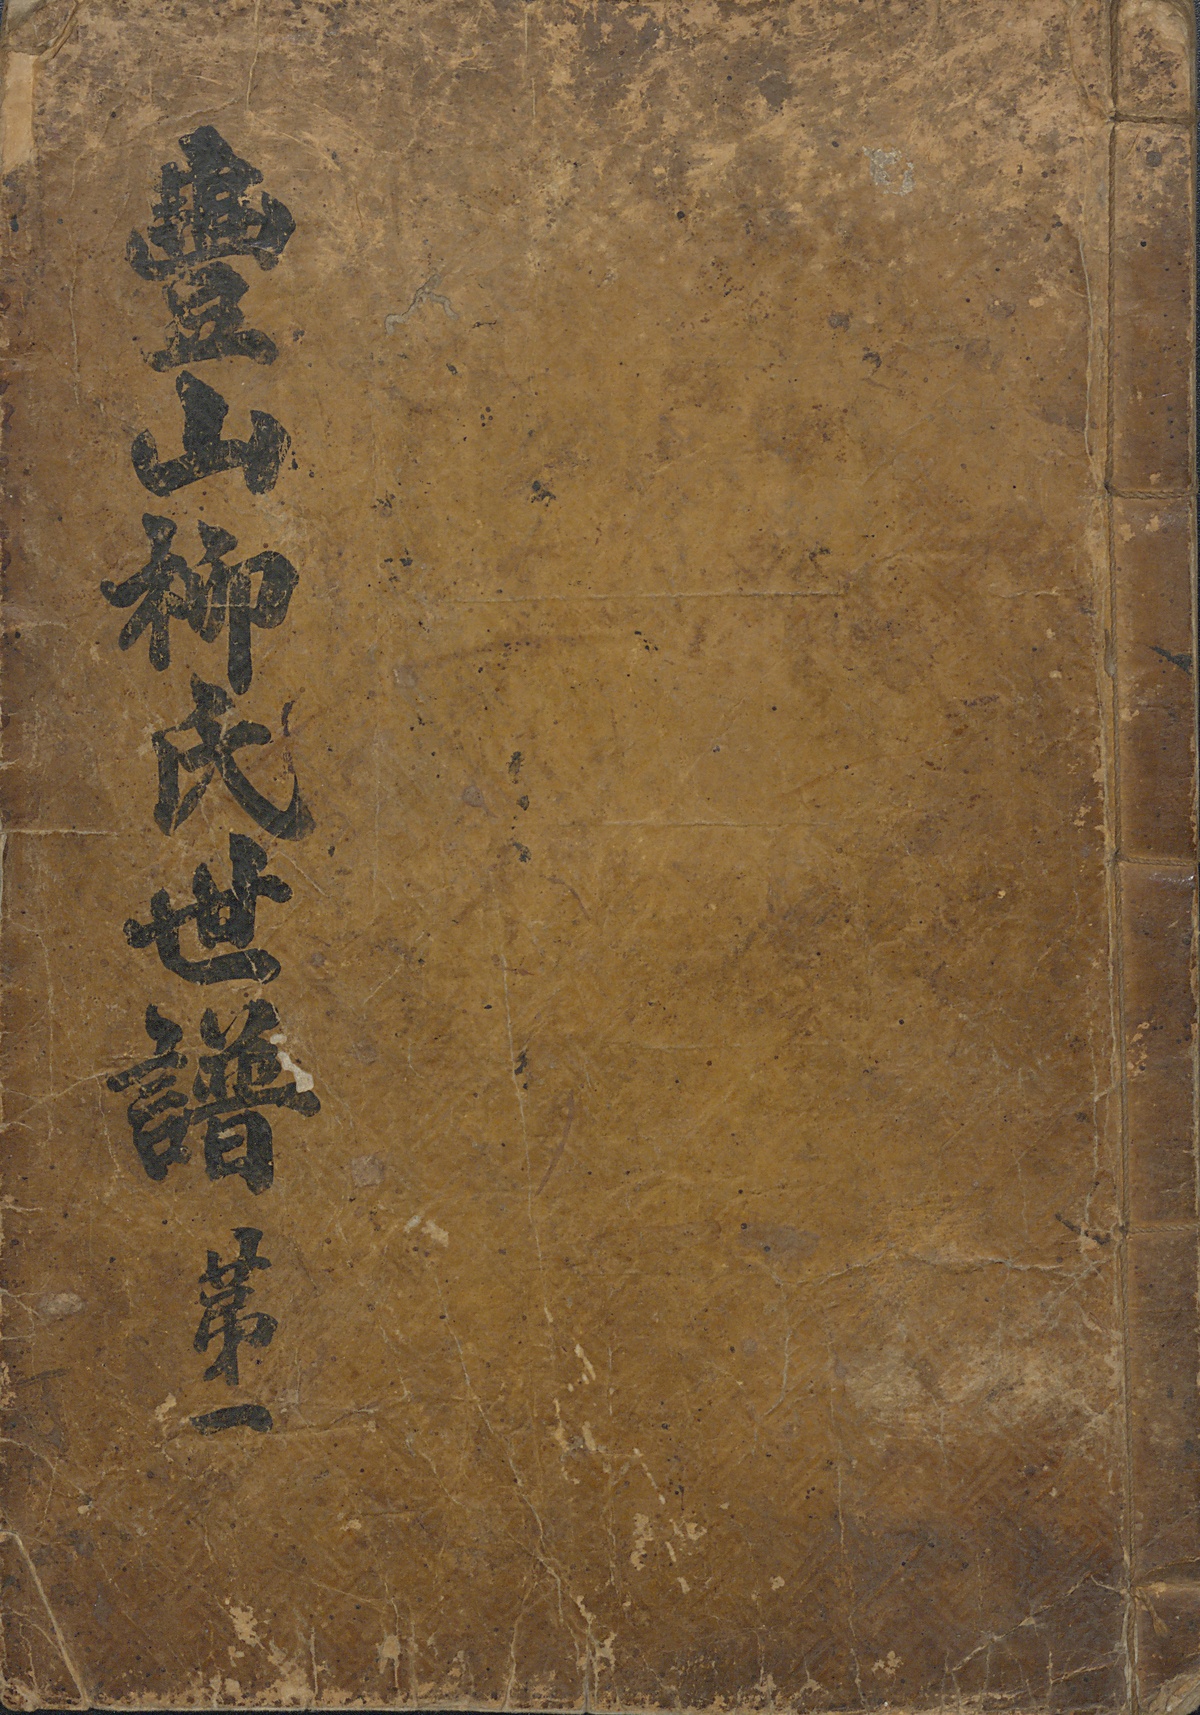 豊山柳氏世譜 第一